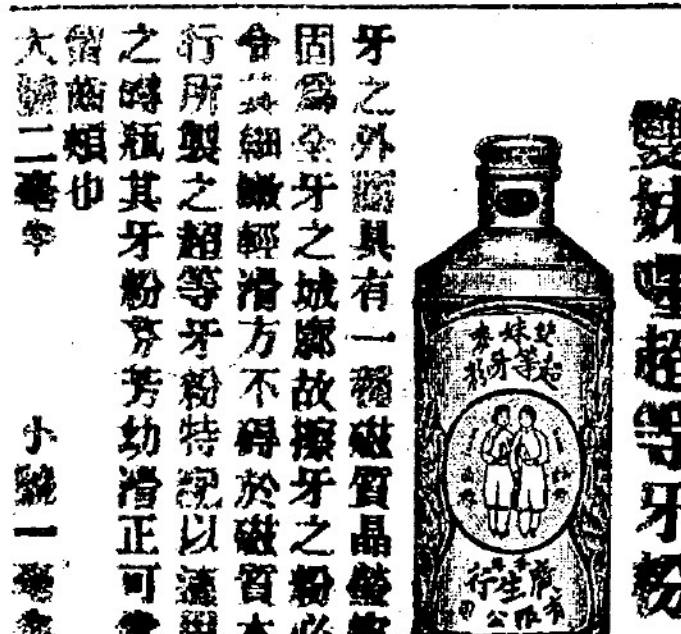 雙妹超等牙粉
雙妹
超等牙粉
廣生行
有限公司
牙之外面具有一種磁質晶瑩
固為全牙之城廓故擦牙之粉必
令其細嫩輕滑方不碍於磁質本
行所製之超等牙粉特以
之瓶其牙粉芬芳幼滑正可
留齒頰也
大號二毫半 小號一毫